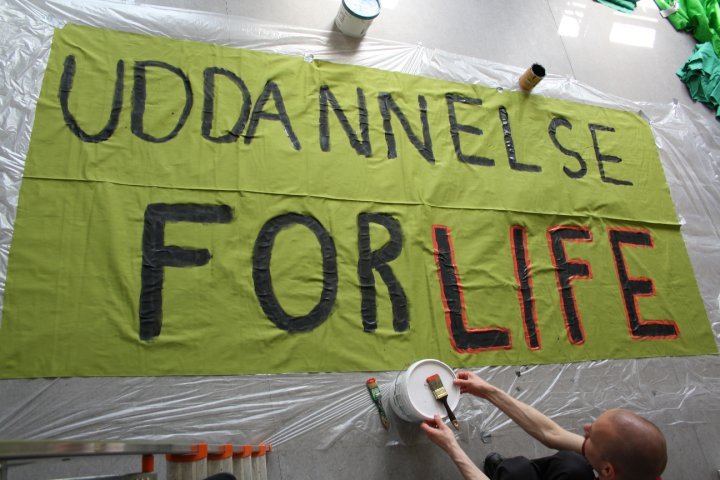 UDDANNELSE
FOR LIFE